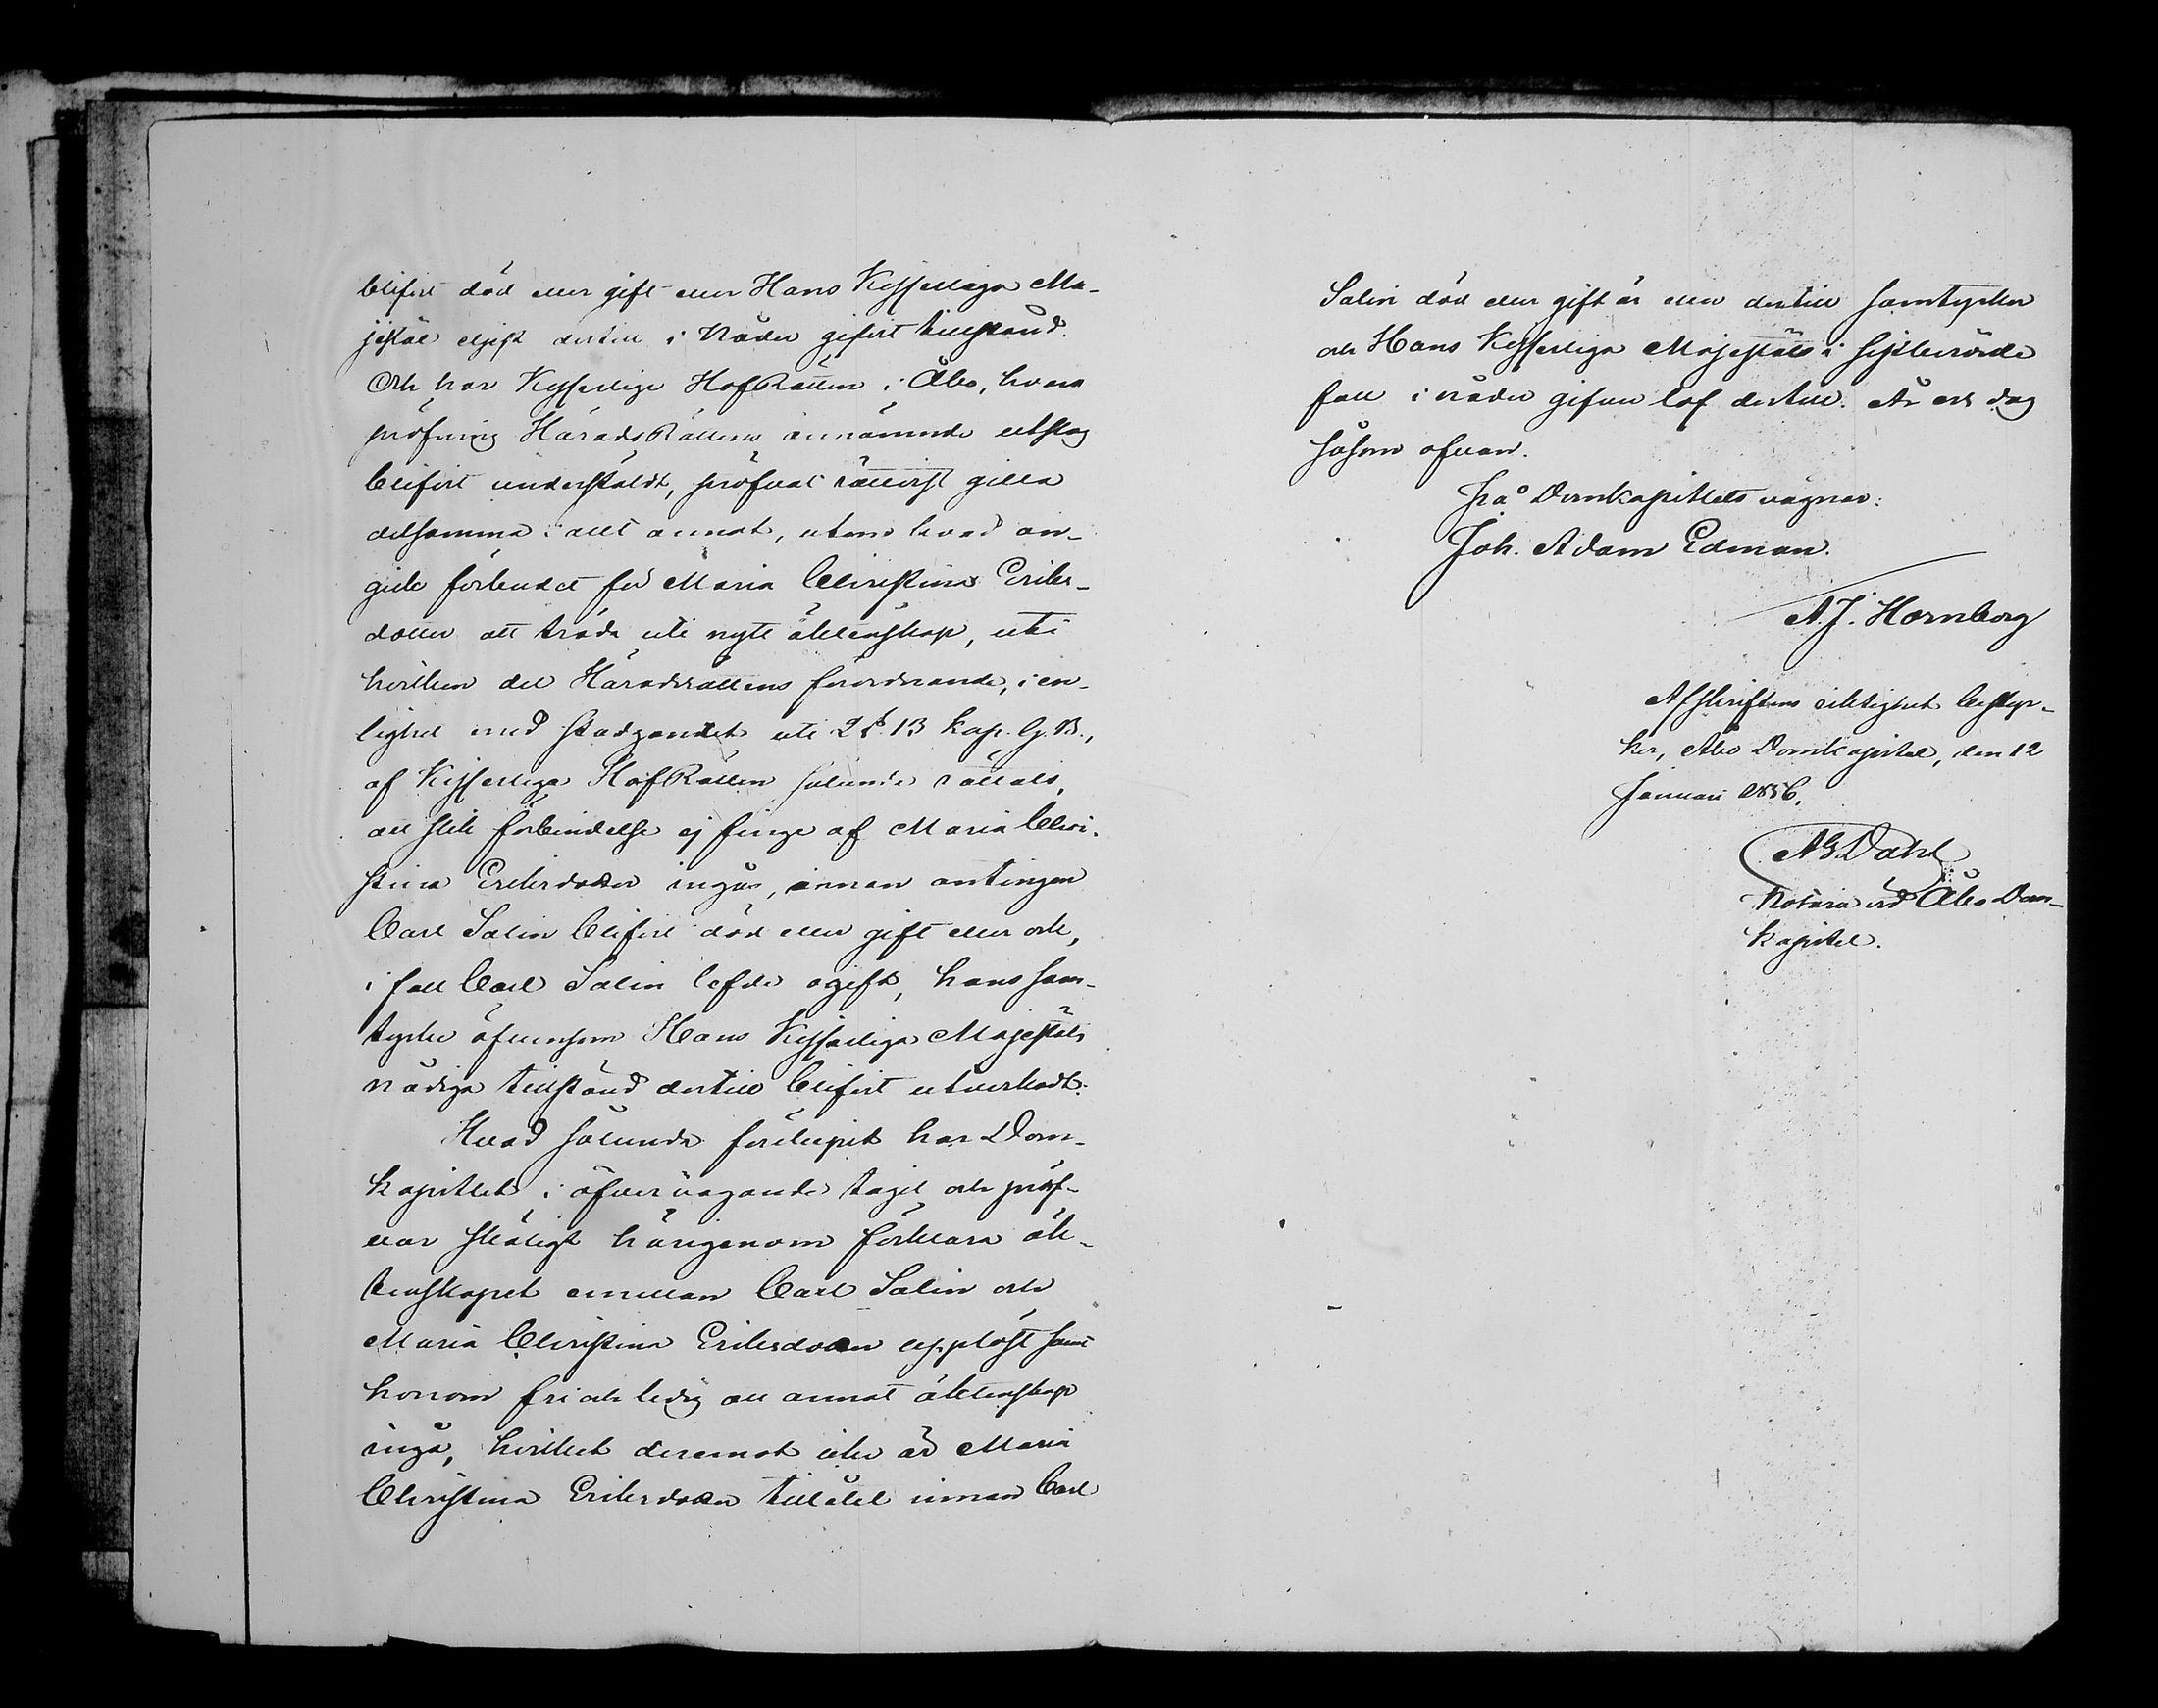 blifvit död eller gift eller Hans Kejserliga Ma-
jestät eljest dertill i Nåder gifvit tillstånd.
Och har Kejserliga HofRätten i Åbo, hvars
pröfning HäradsRättens omnämnde utslag
blifvit understäldt, pröfvat rättvist gilla
detsamma i allt annat, utom hvad an-
gick förbudet för Maria Christina Eriks-
dotter att träda uti nytt äktenskap, uti
hvilken del Häradsrättens förordnande, i en-
lighet med stadgandet uti 2 § 13 Kap. G. B.,
af Kejserliga HofRätten sålunda rättats,
att slik förbindelse ej finge af Maria Chri-
stina Eriksdotter ingås, innan antingen
Carl Salin blifvit död eller gift eller ock,
i fall Carl Salin lefde ogift, hans sam-
tycke äfvensom Hans Kejserliga Majestäts
nådiga tillstånd dertill blifvit utverkadt.
Hvad sålunda förelupit har Dom-
kapitlet i öfvervägande tagit och pröf-
var skäligt härigenom förklara äk-
tenskapet emellan Carl Salin och
Maria Christina Eriksdotter upplöst samt
honom fri och ledig att annat äktenskap
ingå, hvilket deremot icke är Maria
Christina Eriksdotter tillåtet innan Carl
Salin död eller gift är eller dertill samtycker
och Hans Kejserliga Majestäts i sistberörde
fall i nåder gifven lof dertill. År och dag
såsom ofvan.
På Domkapitlets vägnar:
Joh. Adam Edman.
A. J. Hornborg
Afskriftens riktighet bestyr-
ker, Åbo Domkapitel, den 12
Januari 1886.
Dahl
Notarie vid Åbo Dom-
kapitel.